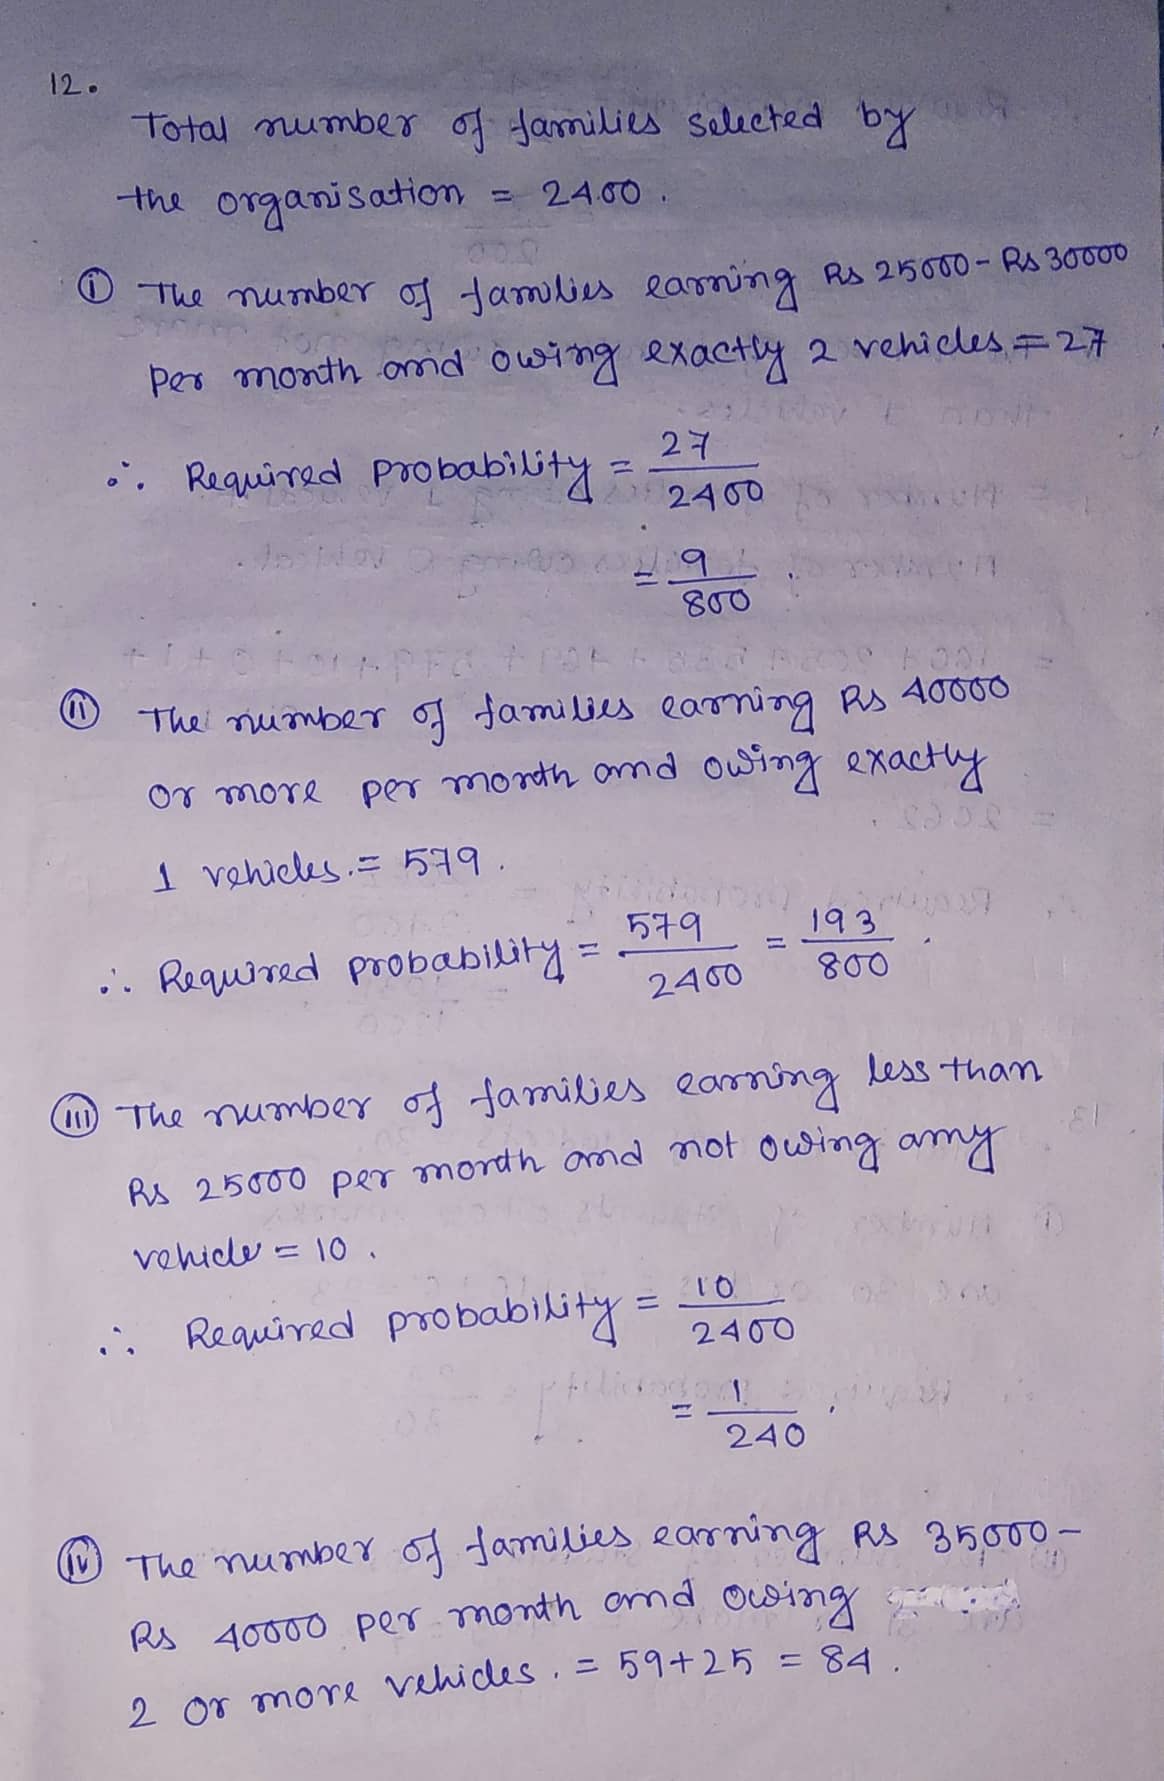 12.
Total number of families selected by
the organisation = 2400.
(i) The number of families earning Rs 25000 - Rs 30000
per month and owing exactly 2 vehicles = 27
∴ Required probability = 27/2400
= 9/800.
(ii) The number of families earning Rs 40000
or more per month and owing exactly
1 vehicles. = 579.
∴ Required probability = 579/2400 = 193/800.
(iii) The number of families earning less than
Rs 25000 per month and not owing any
vehicle = 10.
∴ Required probability = 10/2400
= 1/240.
(iv) The number of families earning Rs 35000 -
Rs 40000 per month and owing
2 or more vehicles. = 59+25 = 84.